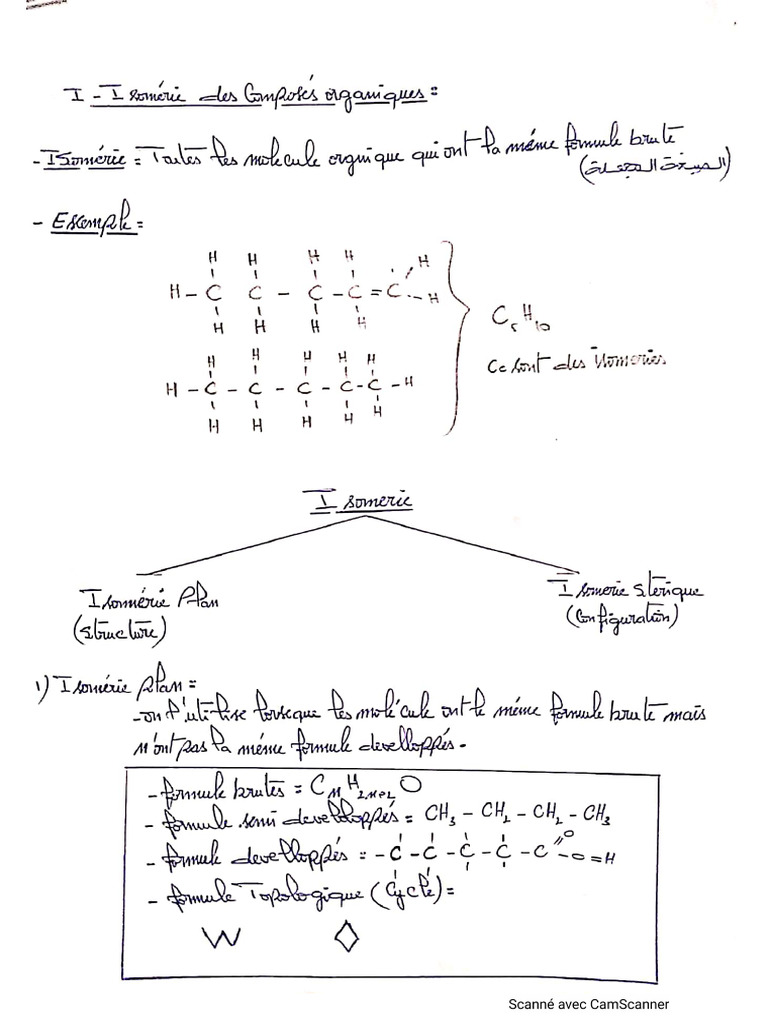 I - Isomérie des Composés organiques :
- Isomérie = Toutes les molécule orgnique qui ont la même formule brute
(الصيغة المجملة)
- Exemple :
H H H H H
H - C C - C - C = C - H
H H H H
C5H10
Ce sont des isomeries
H H H H H
H - C - C - C - C - C - H
H H H H H
Isomerie
Isomérie Plan
(structure)
Isomerie sterique
(Configuration)
1) Isomérie plan =
- on l'utilise lorseque les molécule ont le même formule brute mais
n'ont pas la même formule develloppés.
- formule brutes = CnH2n+2O
- formule semi develloppés = CH3 - CH2 - CH2 - CH3
- formule develloppés = - C - C - C - C - C = O - O = H
- formule Topologique (Cycle) =
Scanné avec CamScanner